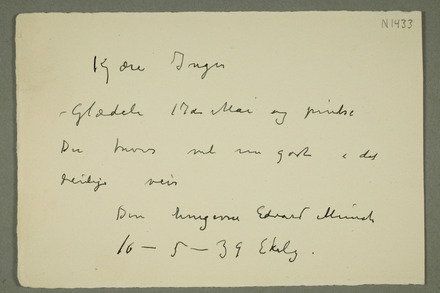 N 1433
Kjære Inger
Glædelig 17de Mai og pintse
Du vel godt det
deilige veir
Din hengivne Edvard Munch
16 – 5 – 39 Ekely.